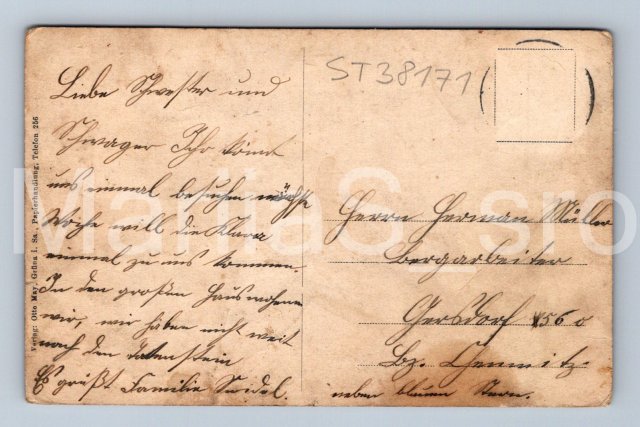 ST38171
Liebe Schwester und
Schwager Ihr könnt
uns einmal besuchen nächste
Woche will die Klara
einmal zu uns kommen.
In den großen Haus wohnen
wir, wir haben nicht weit
nach den
Es grüßt Familie Seidel.
Herrn Herman Müller
Bergarbeiter
Gersdorf 156 c
Bz. Chemnitz
neben blauen Stern.
Verlag: Otto May, Grüna i. Sa., Papierhandlung, Telefon 256